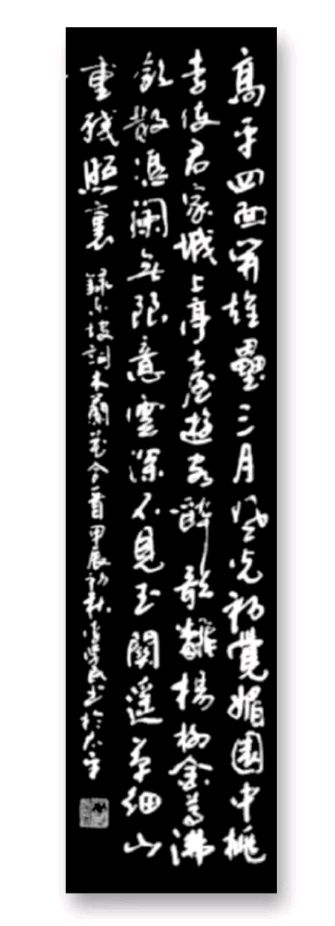 高平四面開雄壘三月風光初覺媚園中桃
李使君家城上亭臺遊客醉歌翻楊柳金尊沸
飲散憑闌無限意雲深不見玉關遙草細山
重殘照裏 錄東坡詞木蘭花令一首甲辰初秋 書於